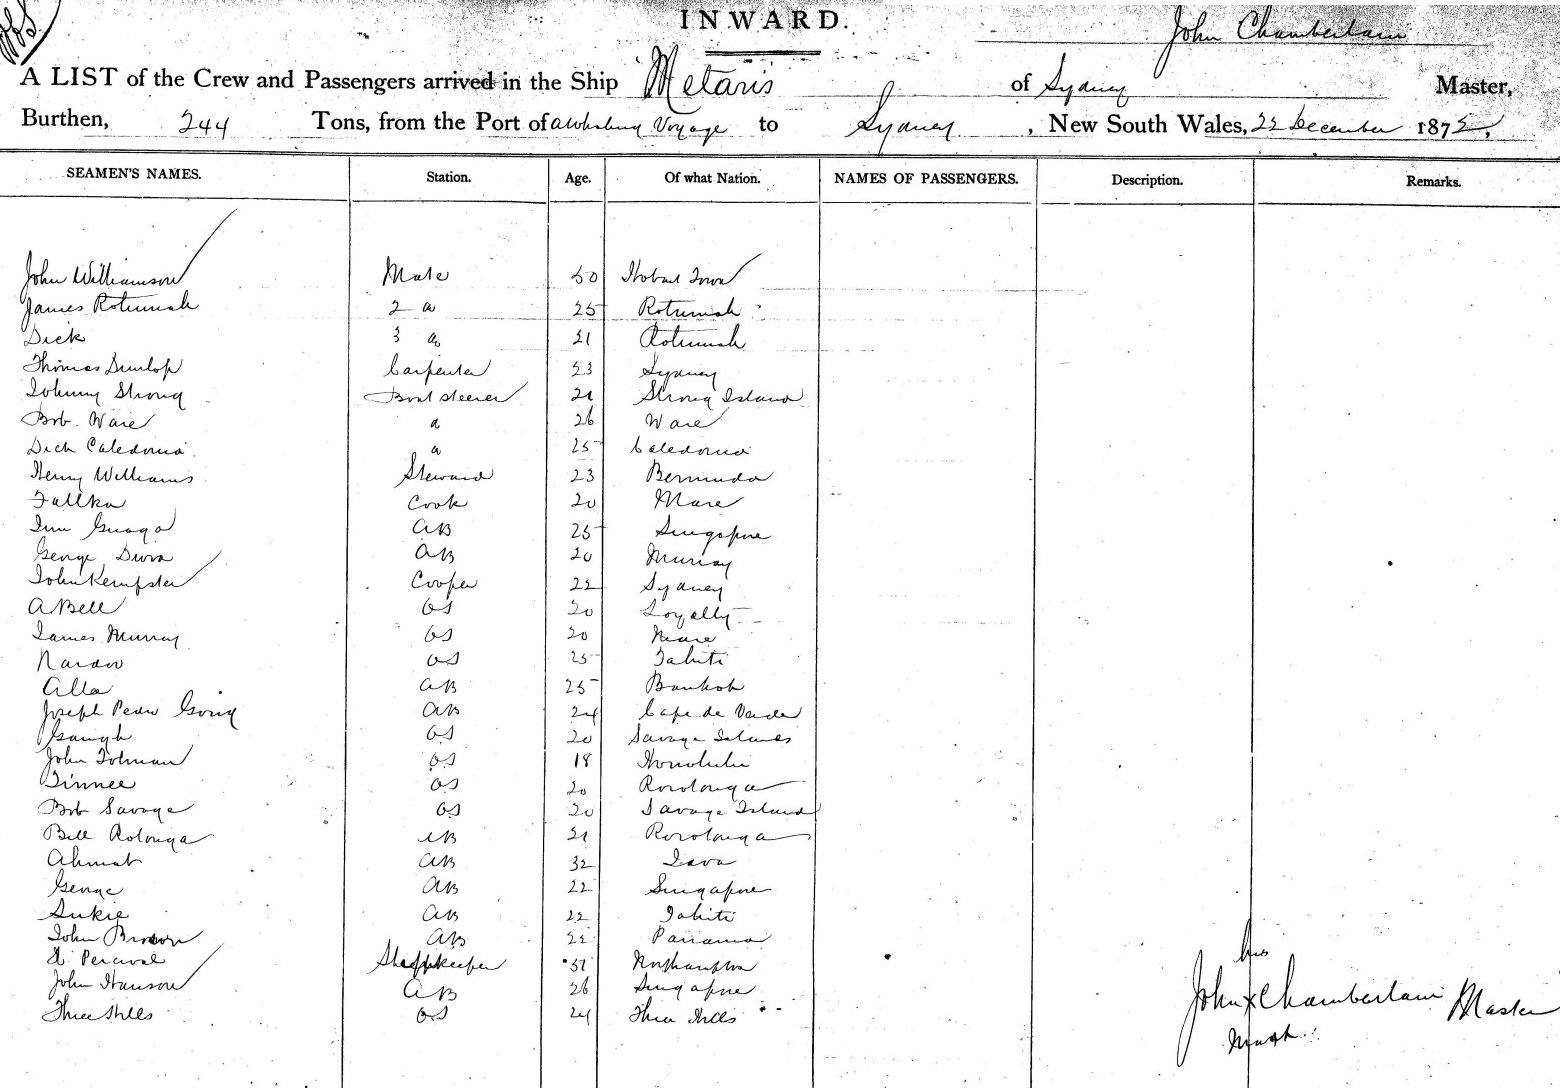 INWARD.
John Chamberlain
A LIST of the Crew and Passengers arrived in the Ship Metaris of Sydney Master,
Burthen, 244 Tons, from the Port of Voyage to Sydney, New South Wales, 22 December 1875,
SEAMEN'S NAMES. Station. Age. Of what Nation. NAMES OF PASSENGERS. Description. Remarks.
John Williamson Mate 50 Hobart Town
James Rotumah 2 a 25 Rotumah
Dick 3 a 21 Rotumah
Thomas Dunlop Carpenter 23 Sydney
Johnny Strong Boatsteerer 21 Strong Island
Bob Ware a 26 Ware
Dick Caledonia a 25 Caledonia
Henry Williams Steward 23 Bermuda
Fallka Cook 20 Mare
AB 25 Singapore
George AB 20 Murray
John Kempster Cooper 22 Sydney
A Bell OS 20 Loyalty
James Murray OS 20 Mare
Nardoo OS 25 Tahiti
Alla AB 25 Bankok
Joseph Pedro AB 24 Cape de Verde
Gough OS 20 Savage Islands
John Tolman OS 18 Honolulu
Tinnee OS 20 Rorotonga
Bob Savage OS 20 Savage Island
Bill Rotonga AB 21 Rorotonga
Ahmat AB 32 Java
George AB 22 Singapore
Sukie AB 22 Tahiti
John Brown AB 22 Panama
Percival Shipkeeper 37 Northampton
John Hanson AB 26 Singapore
Three Hills OS 24 Three Hills
his
John X Chamberlain Master
Mark